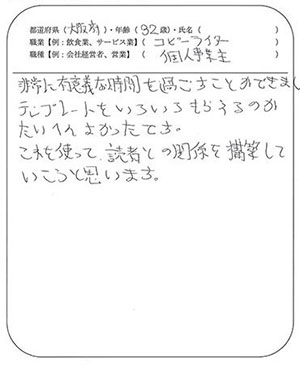 都道府県(大阪府)・年齢(32歳)・氏名( )
職業【例:飲食業、サービス業】( コピーライター )
職種【例:会社経営者、営業】( 個人事業主 )
非常に有意義な時間を過ごすことができまし
テンプレートをいろいろもらえるのが
たいへんよかったです。
これを使って、読者との関係を構築して
いこうと思います。